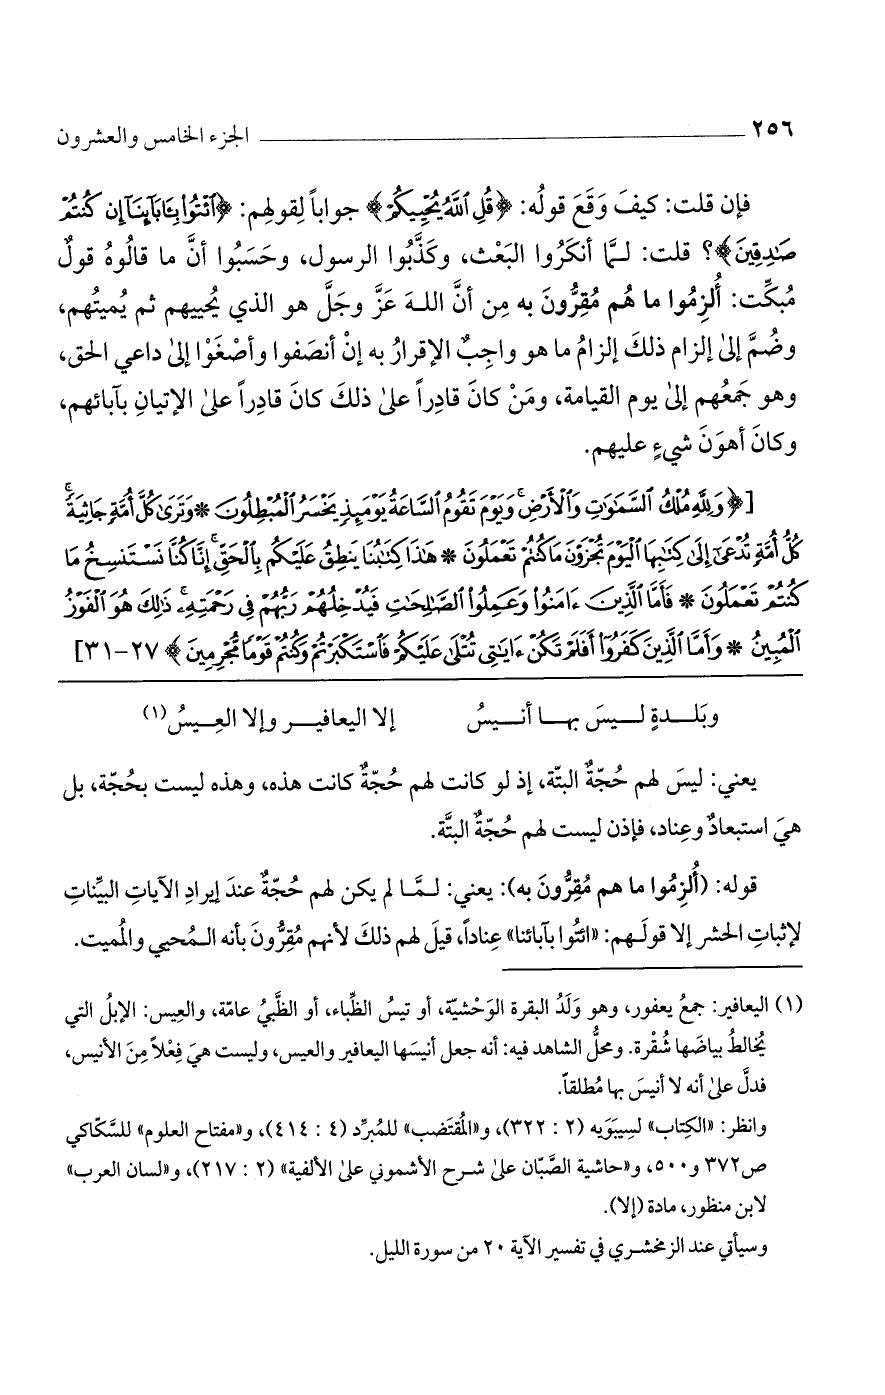 ٢٥٦ الجزء الخامس والعشرون
فإن قلت: كيفَ وَقَعَ قولُه: ﴿قُلِ ٱللَّهُ يُحْيِيكُمْ﴾ جواباً لِقولهِم: ﴿ٱئْتُوا۟ بِـَٔابَآئِنَآ إِن كُنتُمْ
صَـٰدِقِينَ﴾؟ قلت: لـمَّا أنكَرُوا البَعْث، وكَذَّبُوا الرسول، وحَسَبُوا أنَّ ما قالُوهُ قولٌ
مُبكِّت: أُلزِمُوا ما هُم مُقِرُّونَ به مِن أنَّ اللـهَ عَزَّ وجَلَّ هو الذي يُحييهم ثم يُميتُهم،
وضُمَّ إلىٰ إلزام ذلكَ إلزامُ ما هو واجِبٌ الإقرارُ به إنْ أنصَفوا وأصْغَوْا إلىٰ داعي الحق،
وهو جَمعُهم إلىٰ يوم القيامة، ومَنْ كانَ قادِراً علىٰ ذلكَ كانَ قادِراً علىٰ الإتيانِ بآبائهم،
وكانَ أهوَنَ شيءٍ عليهم.
[﴿وَلِلَّهِ مُلْكُ ٱلسَّمَـٰوَٰتِ وَٱلْأَرْضِ ۚ وَيَوْمَ تَقُومُ ٱلسَّاعَةُ يَوْمَئِذٍ يَخْسَرُ ٱلْمُبْطِلُونَ * وَتَرَىٰ كُلَّ أُمَّةٍ جَاثِيَةً ۚ
كُلُّ أُمَّةٍ تُدْعَىٰٓ إِلَىٰ كِتَـٰبِهَا ٱلْيَوْمَ تُجْزَوْنَ مَا كُنتُمْ تَعْمَلُونَ * هَـٰذَا كِتَـٰبُنَا يَنطِقُ عَلَيْكُم بِٱلْحَقِّ ۚ إِنَّا كُنَّا نَسْتَنسِخُ مَا
كُنتُمْ تَعْمَلُونَ * فَأَمَّا ٱلَّذِينَ ءَامَنُوا۟ وَعَمِلُوا۟ ٱلصَّـٰلِحَـٰتِ فَيُدْخِلُهُمْ رَبُّهُمْ فِى رَحْمَتِهِۦ ۚ ذَٰلِكَ هُوَ ٱلْفَوْزُ
ٱلْمُبِينُ * وَأَمَّا ٱلَّذِينَ كَفَرُوٓا۟ أَفَلَمْ تَكُنْ ءَايَـٰتِى تُتْلَىٰ عَلَيْكُمْ فَٱسْتَكْبَرْتُمْ وَكُنتُمْ قَوْمًا مُّجْرِمِينَ﴾ ٢٧-٣١]
وبَلــدةٍ لـيسَ بهـا أنـيسُ إلا اليعافيـر وإلا العِـيسُ(١)
يعني: ليسَ لهم حُجّةٌ البتّة، إذ لو كانت لهم حُجّةٌ كانت هذه، وهذه ليست بحُجّة، بل
هيَ استبعادٌ وعِناد، فإذن ليست لهم حُجّةٌ البتَّة.
قوله: (أُلزِمُوا ما هم مُقِرُّونَ به): يعني: لـمَّـا لم يكن لهم حُجّةٌ عندَ إيرادِ الآياتِ البيِّناتِ
لإثباتِ الحشر إلا قولَـهم: «ائتُوا بآبائنا» عِناداً، قيلَ لهم ذلكَ لأنهم مُقِرُّونَ بأنه الـمُحيي والمُميت.
(١) اليعافير: جمعُ يعفور، وهو وَلَدُ البقرة الوَحْشيّة، أو تيسُ الظِّباء، أو الظَّبيُ عامّة، والعِيس: الإبلُ التي
يُخالطُ بياضَها شُقْرة. ومحلُّ الشاهد فيه: أنه جعل أنيسَها اليعافير والعيس، وليست هيَ فِعْلاً مِنَ الأنيس،
فدلَّ علىٰ أنه لا أنيسَ بها مُطلقاً.
وانظر: «الكِتاب» لسِيبَوَيه (٢ : ٣٢٢)، و«المُقتَضب» للمُبرِّد (٤ : ٤١٤)، و«مفتاح العلوم» للسَّكّاكي
ص٣٧٢ و٥٠٠، و«حاشية الصَّبّان علىٰ شـرح الأشموني علىٰ الألفية» (٢ : ٢١٧)، و«لسان العرب»
لابن منظور، مادة (إلا).
وسيأتي عند الزمخشـري في تفسير الآية ٢٠ من سورة الليل.